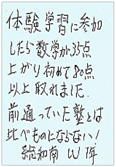 体験学習に参加
したら数学が35点
上がり初めて80点
以上取れました。
前通っていた塾とは
比べものにならない!
総和南 W 1年